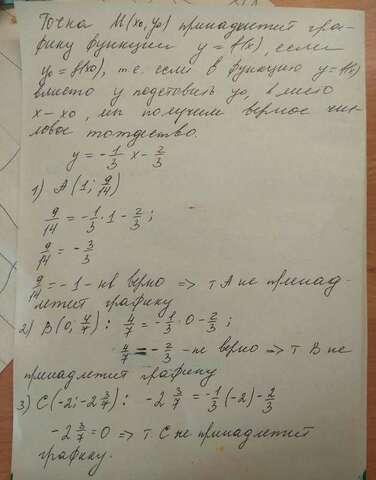 Точка М(x₀, y₀) принадлежит гра-
фику функции y = f(x), если
y₀ = f(x₀), т.е. если в функцию y=f(x)
вместо y подставить y₀, вместо
x – x₀, мы получим верное чис-
ловое тождество.
y = -1/3 x - 2/3
1) A(1; 9/14)
9/14 = -1/3 · 1 - 2/3;
9/14 = -3/3
9/14 = -1 - не верно => т А не принад-
лежит графику
2) B(0; 4/7): 4/7 = -1/3 · 0 - 2/3;
4/7 = -2/3 - не верно => т В не
принадлежит графику
3) C(-2; -2 3/7): -2 3/7 = -1/3 (-2) - 2/3
-2 3/7 = 0 => т. С не принадлежит
графику.